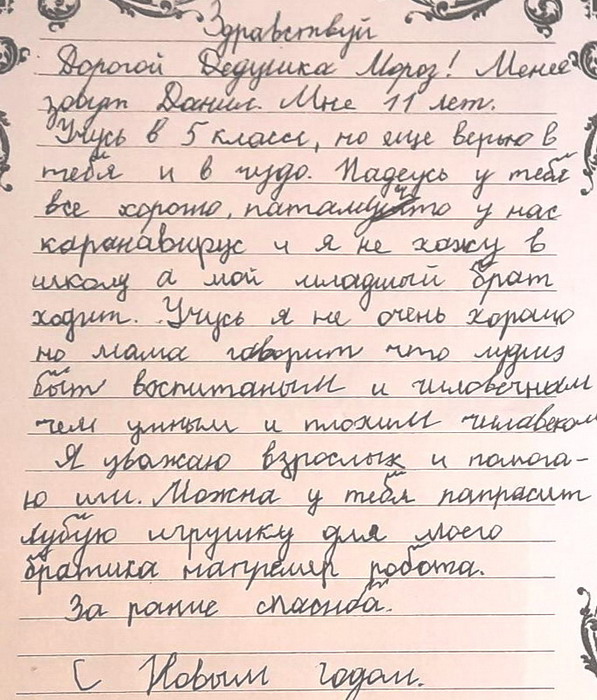 Здравствуй
Дорогой Дедушка Мороз! Менее
зовут Данил. Мне 11 лет.
Учусь в 5 классе, но еще верью в
тебя и в чудо. Надеусь у тебя
все хорошо, патамучто у нас
каранавирус и я не хажу в
школу а мой младшый брат
ходит. Учусь я не очень хорошо
но мама говорит что лудшэ
быт воспитаным и чиловечным
чем умным и плохим чилавеком
Я уважаю взрослых и помога-
ю им. Можна у тебя папрасит
лубую игрушку для моего
братика напремер робота.
За рание спасиба.
С Новым годом.